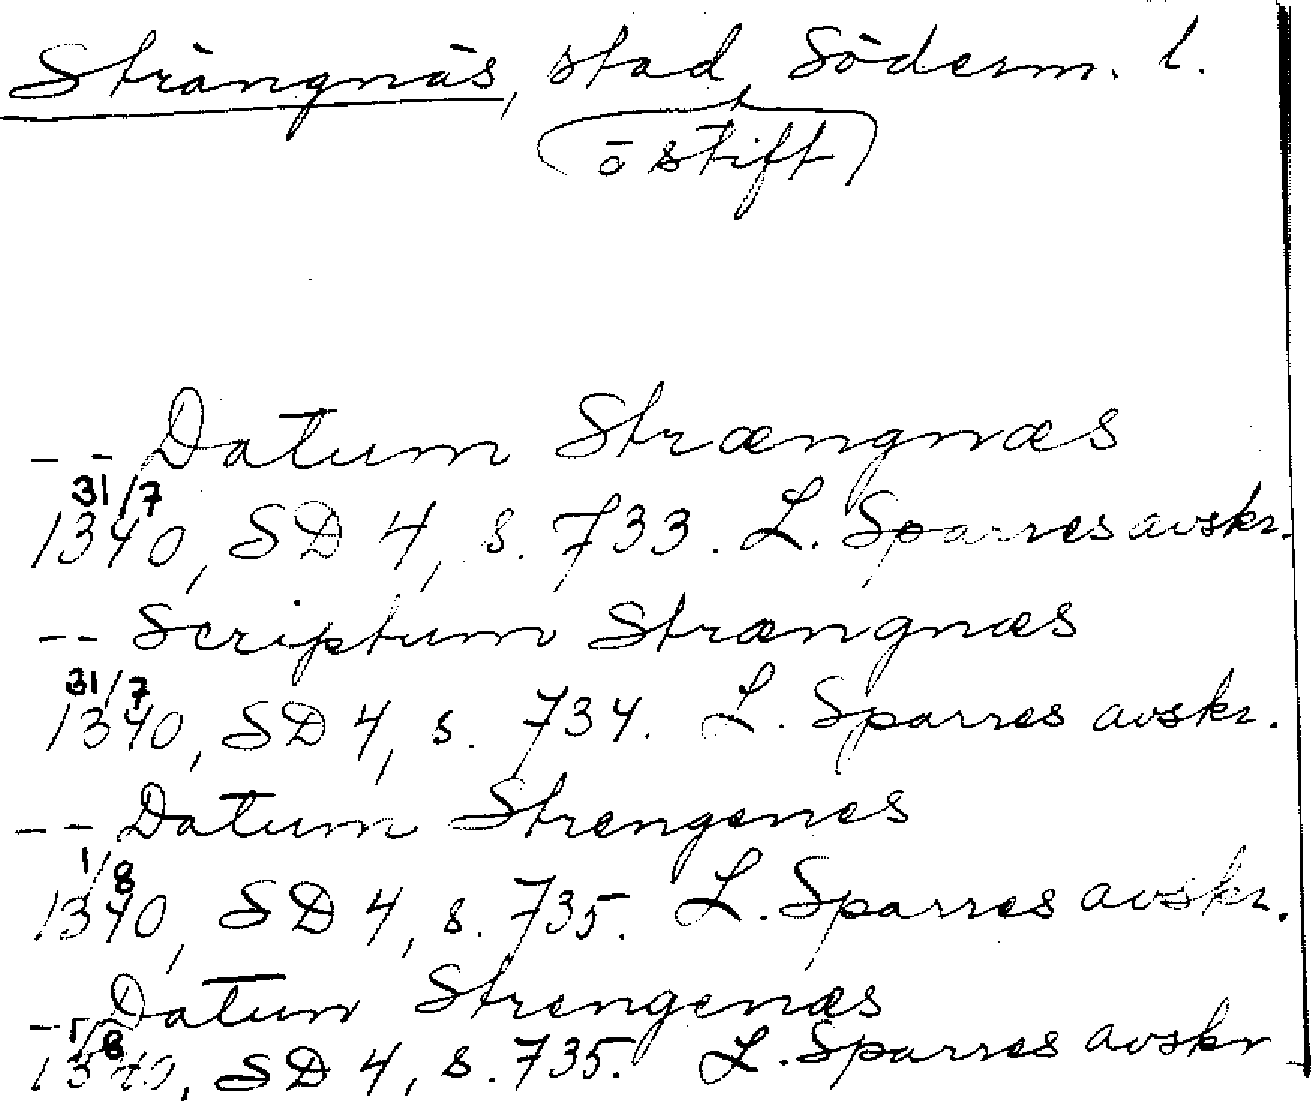 Strängnäs, stad Söderm. l.
(o stift)
-- Datum Strængnæs
31/7
1340, SD 4, s. 733. L. Sparres avskr.
-- Scriptum Strængnæs
31/7
1340, SD 4, s. 734. L. Sparres avskr.
-- Datum Strengenes
1/8
1340, SD 4, s. 735. L. Sparres avskr.
-- Datum Strengenæs
1/8
1340, SD 4, s. 735. L. Sparres avskr